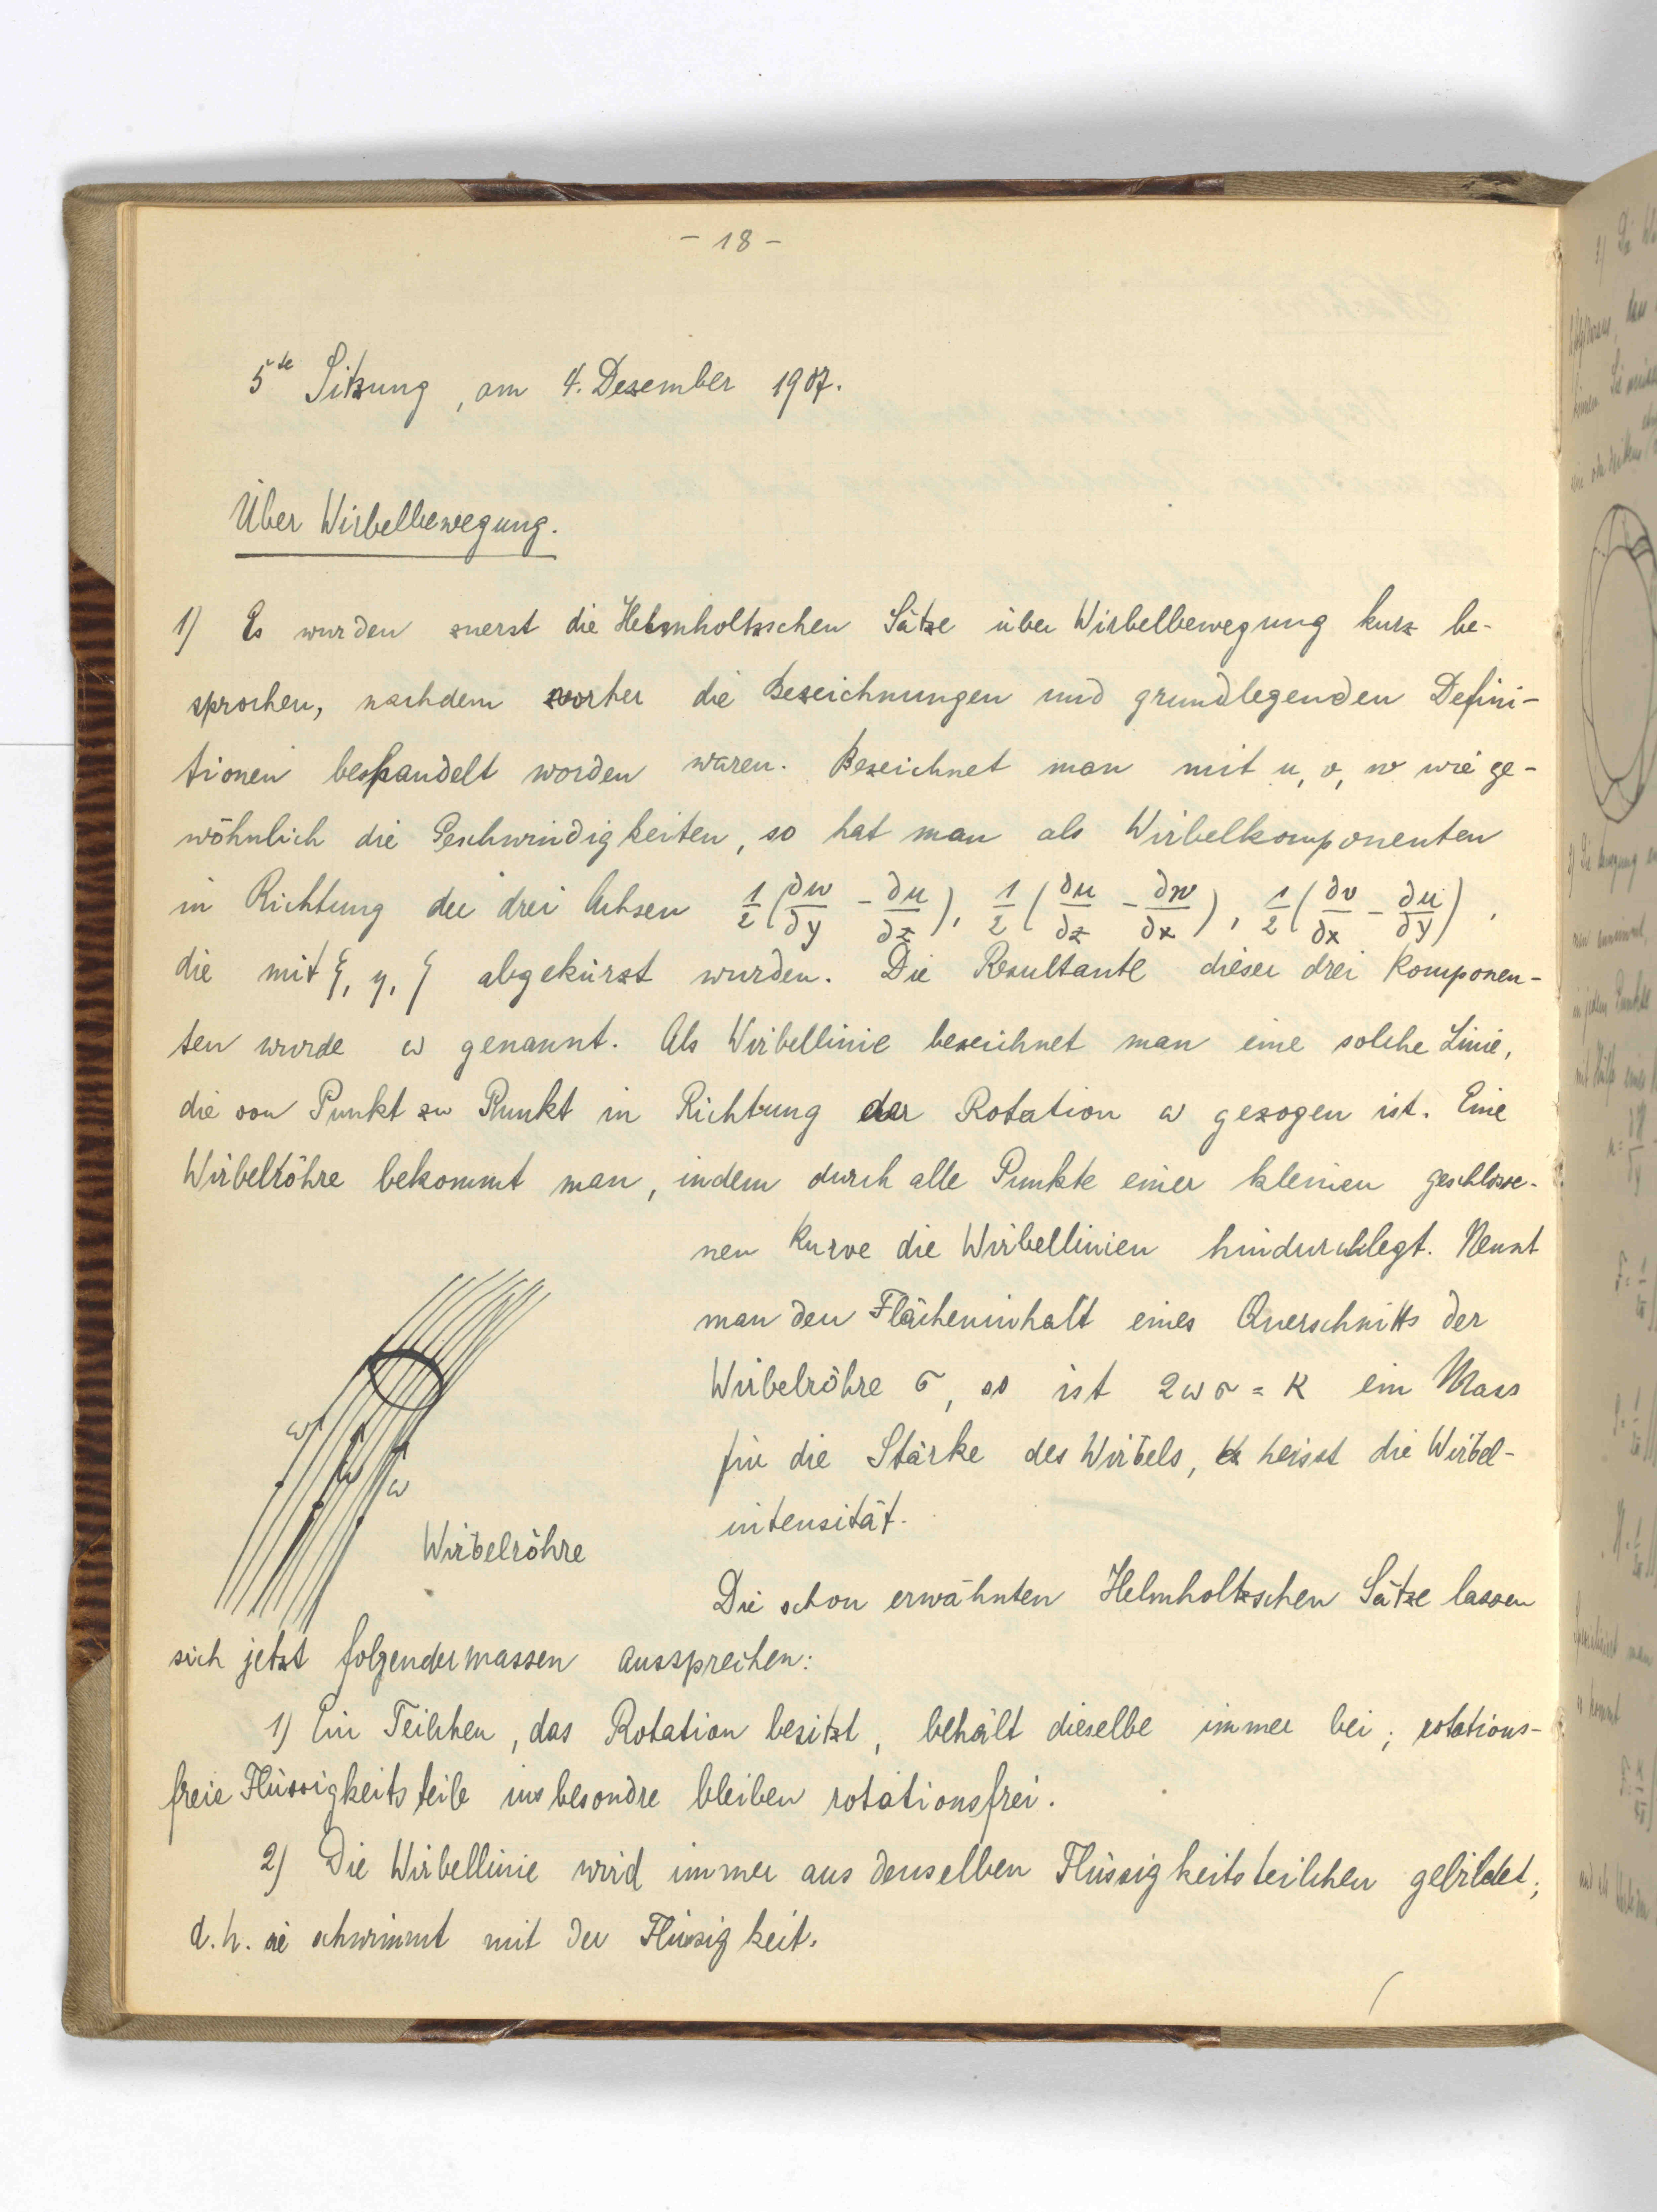 - 18 -
5te Sitzung, am 4. Dezember 1907.
Über Wirbelbewegung.
1) Es wurden zuerst die Helmholtzschen Sätze über Wirbelbewegung kurz be-
sprochen, nachdem vorher die Bezeichnungen und grundlegenden Defini-
tionen behandelt worden waren. Bezeichnet man mit u, v, w wie ge-
wöhnlich die Geschwindigkeiten, so hat man als Wirbelkomponenten
in Richtung der drei Achsen 1/2(∂w/∂y - ∂u/∂z), 1/2(∂u/∂z - ∂w/∂x), 1/2(∂v/∂x - ∂u/∂y),
die mit ξ, η, ζ abgekürzt wurden. Die Resultante dieser drei Komponen-
ten wurde ω genannt. Als Wirbellinie bezeichnet man eine solche Linie,
die von Punkt zu Punkt in Richtung der Rotation ω gezogen ist. Eine
Wirbelröhre bekommt man, indem durch alle Punkte einer kleinen geschlosse-
nen Kurve die Wirbellinien hindurchlegt. Nennt
man den Flächeninhalt eines Querschnitts der
Wirbelröhre σ, so ist 2ωσ = K ein Mass
für die Stärke des Wirbels, heisst die Wirbel-
intensität.
ω
ω
ω
Wirbelröhre
Die schon erwähnten Helmholtzschen Sätze lassen
sich jetzt folgendermassen aussprechen:
1) Ein Teilchen, das Rotation besitzt, behält dieselbe immer bei; rotations-
freie Flüssigkeitsteile insbesondre bleiben rotationsfrei.
2) Die Wirbellinie wird immer aus denselben Flüssigkeitsteilchen gebildet;
d.h. sie schwimmt mit der Flüssigkeit.